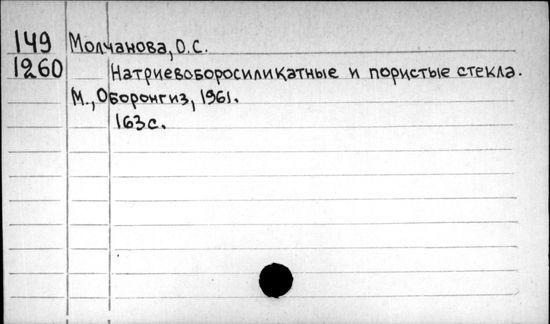 149 Молчанова, О.С.
1260 Натриевоборосиликатные и пористые стекла.
М., Оборонгиз, 1961.
163с.